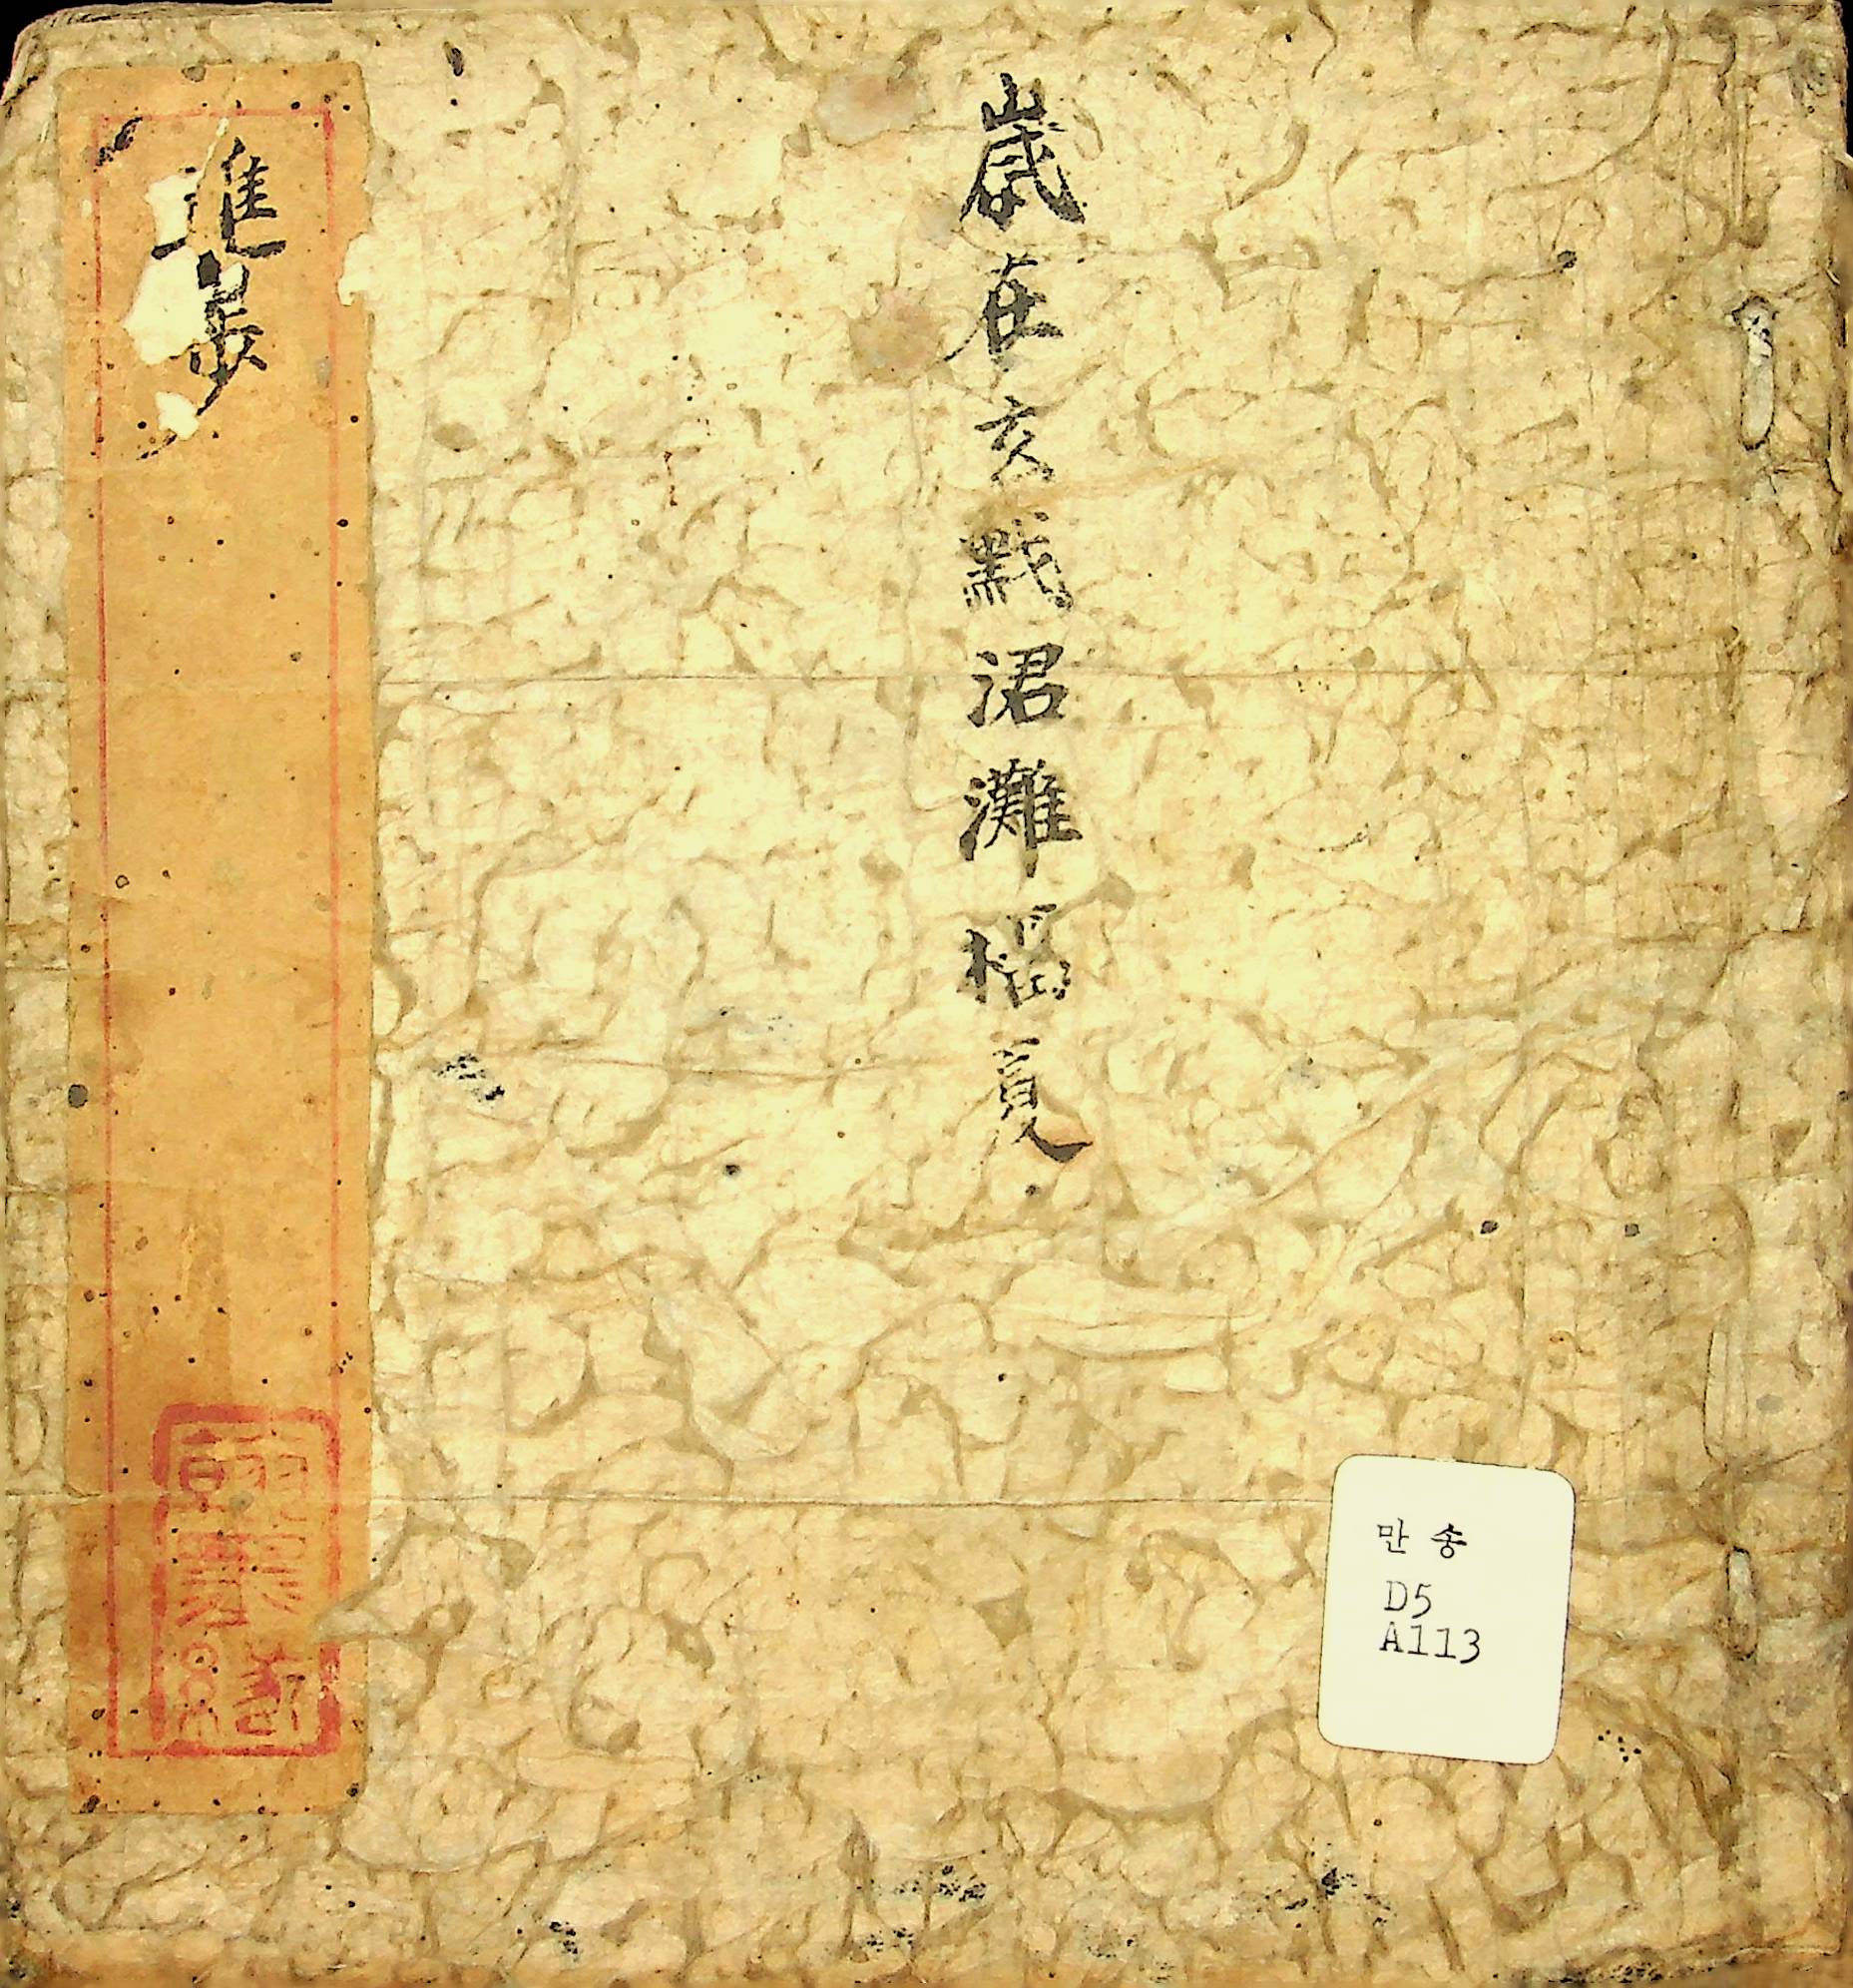 歲在玄黓涒灘榴夏
進步
만송
D5
A113